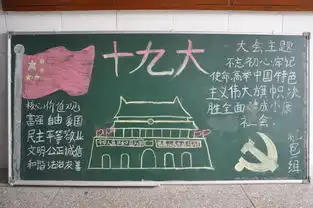 十九大
核心价值观
富强 自由 爱国
民主 平等 敬业
文明 公正 诚信
和谐 法治 友善
大会主题
不忘初心牢记
使命,高举中国特色
主义伟大旗帜决
胜全面建成小康
社会
包组